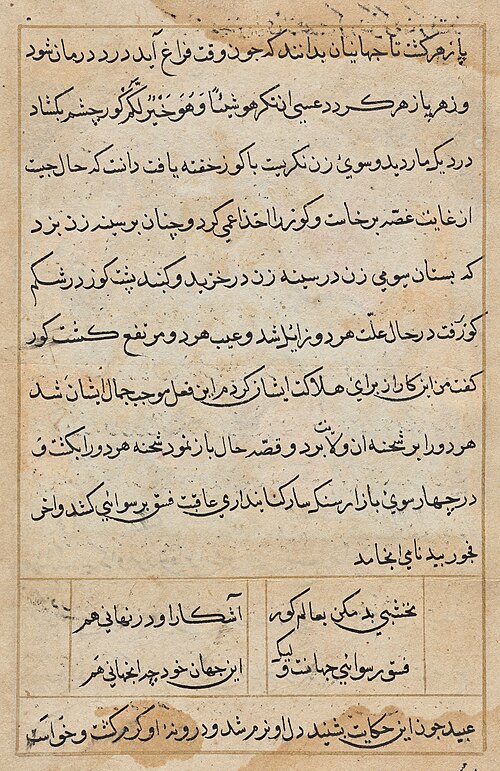 پازهر کشت تا جهانیان بدانند که چون وقت فراغ آید درد درمان شود
و زهر پازهر کردد عسی ان تکرهوا شیئا وَهُوَ خَیْرٌ لَکُم کور چشم بکشاد
در دیک مار دید و سوی زن نکریست با کوز خفته یافت دانست که حال چیست
از غایت غصّه برخاست و کوز را اخذ اعمی کرد و چنان بر سینه زن بزد
که بستان سومی زن در سینه زن در خزید و کنبد پشت کوز در شکم
کوز رفت در حال علّت هر دو زایل شد و عیب هر دو مرتفع کشت کور
کفت من این کار از برای هلاکت ایشان کردم این فعل موجب جمال ایشان شد
هر دو را بر شحنه آن ولایت برد و قصّه حال باز نمود شحنه هر دو را بکشت و
در چهار سوی بازار سنکسار کنانیداری عاقبت فسق برسوائی کشد و آخر
فجور ببدنامی انجامد
نخشبی بد مکن بعالم کور
آشکارا و در نهانی هم
فسق رسوائی جهانست ولیک
این جهان خود چه انجهانی هم
عبید چون این حکایت بشنید دل او نرم شد و درونهٔ او کرم کشت و خواست